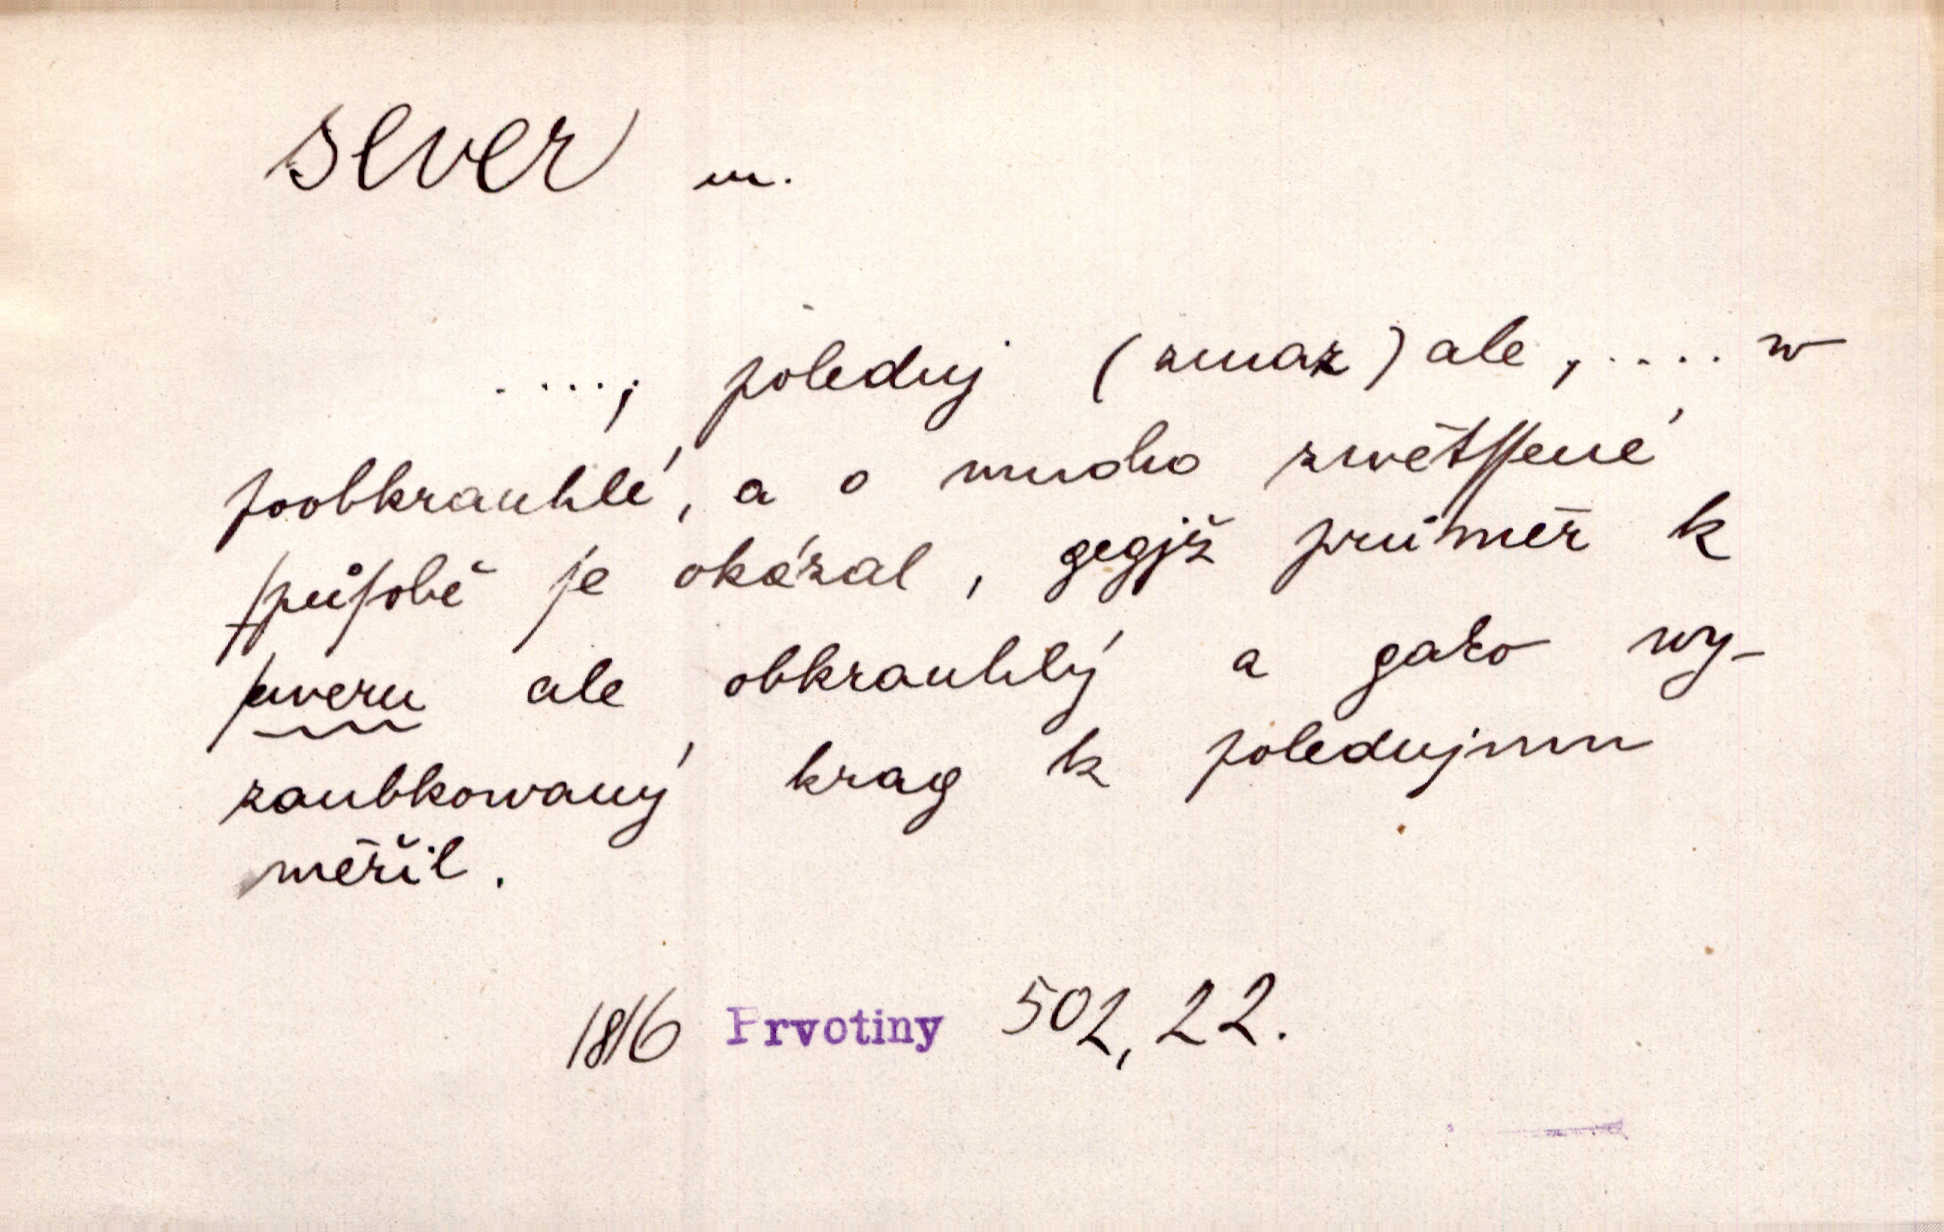 sever m.
....; polednj (zmaz) ale, .... w
poobkrauhlé, a o mnoho zwětſſené
ſpůſobě ſe okázal, gegjž průměr k
ſeweru ale obkrauhlý a gako wy-
zaubkowaný krag k polednjmu
měřil.
1816 Prvotiny 502, 22.